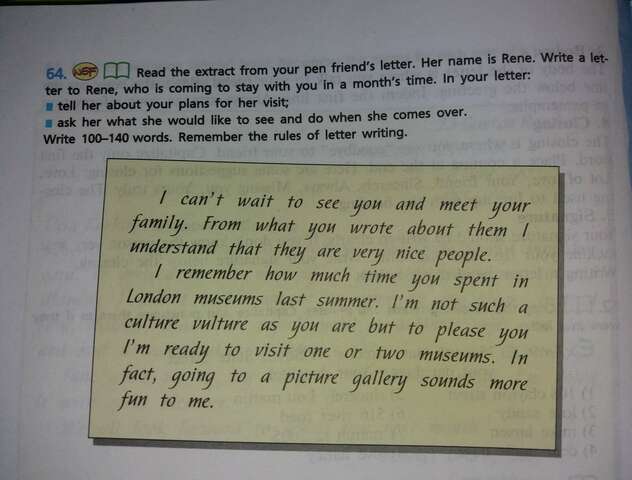 64. NEF Read the extract from your pen friend's letter. Her name is Rene. Write a let-
ter to Rene, who is coming to stay with you in a month's time. In your letter:
tell her about your plans for her visit;
ask her what she would like to see and do when she comes over.
Write 100–140 words. Remember the rules of letter writing.
I can't wait to see you and meet your
family. From what you wrote about them I
understand that they are very nice people.
I remember how much time you spent in
London museums last summer. I'm not such a
culture vulture as you are but to please you
I'm ready to visit one or two museums. In
fact, going to a picture gallery sounds more
fun to me.